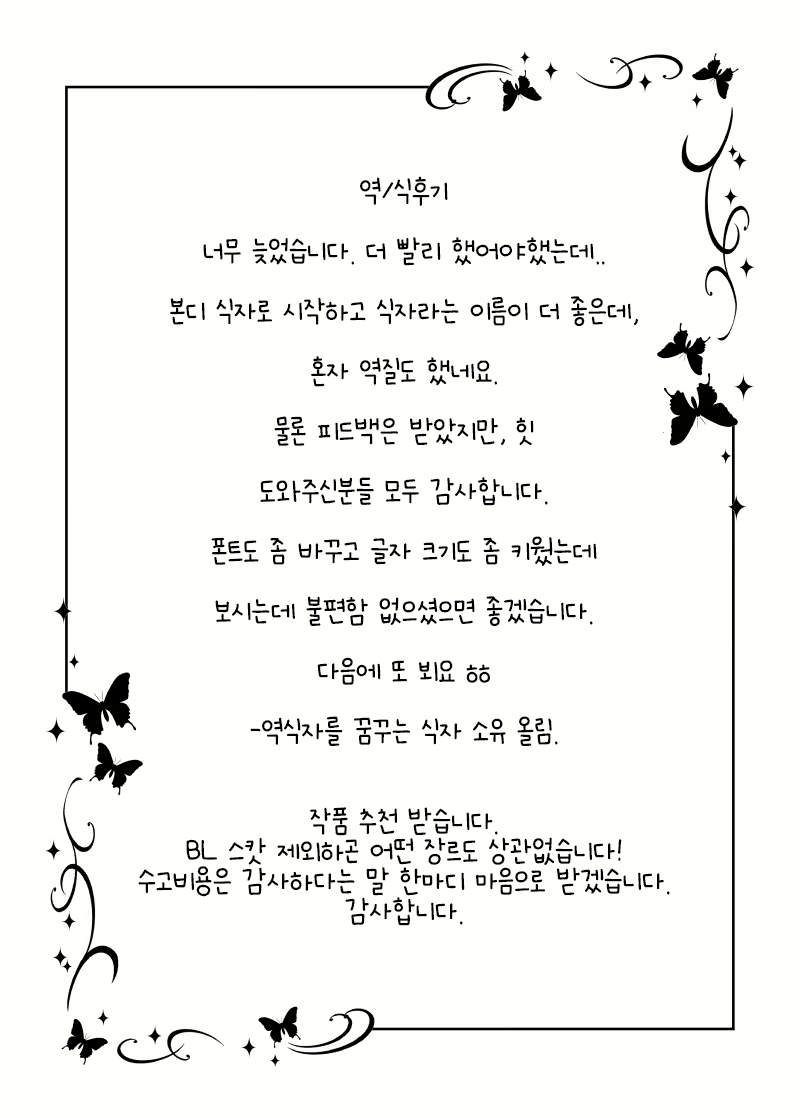 역/식후기
너무 늦었습니다. 더 빨리 했어야했는데..
본디 식자로 시작하고 식자라는 이름이 더 좋은데,
혼자 역질도 했네요.
물론 피드백은 받았지만, 힛
도와주신분들 모두 감사합니다.
폰트도 좀 바꾸고 글자 크기도 좀 키웠는데
보시는데 불편함 없으셨으면 좋겠습니다.
다음에 또 뵈요 ㅎㅎ
-역식자를 꿈꾸는 식자 소유 올림.
작품 추천 받습니다.
BL 스캇 제외하곤 어떤 장르도 상관없습니다!
수고비용은 감사하다는 말 한마디 마음으로 받겠습니다.
감사합니다.